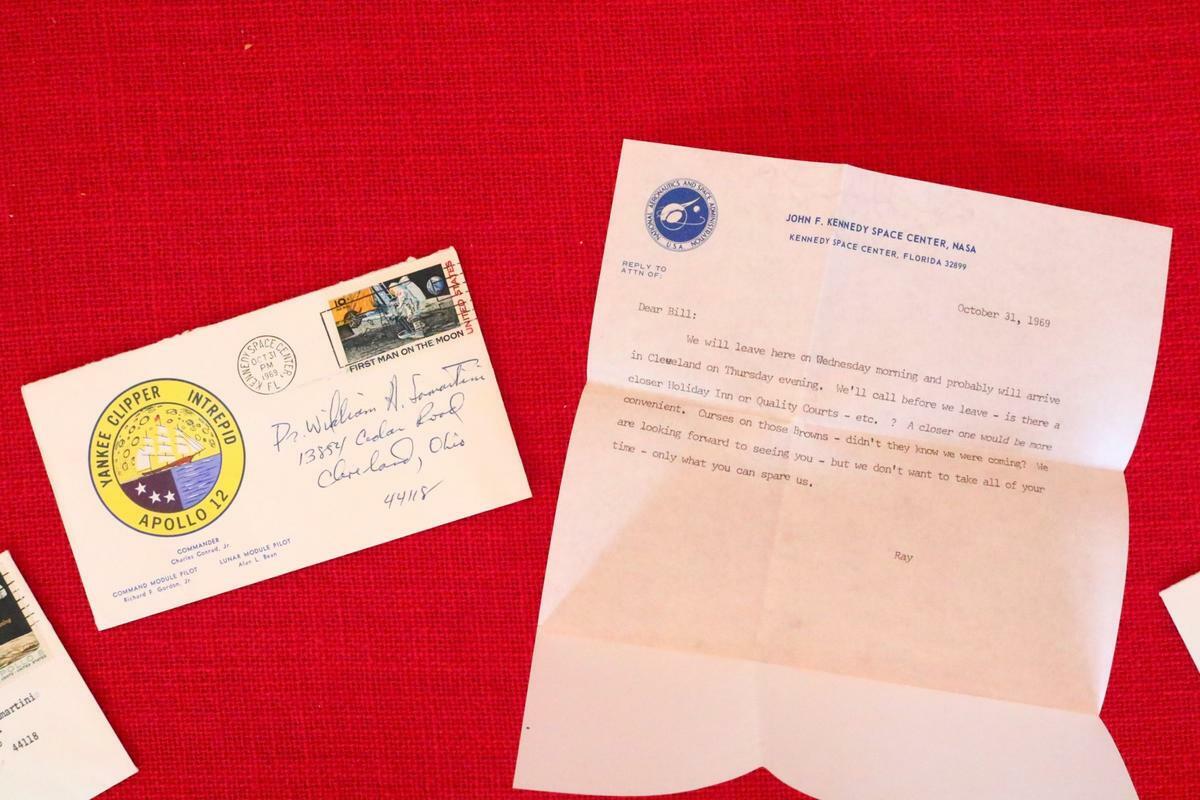 YANKEE CLIPPER INTREPID
APOLLO 12
COMMANDER
Charles Conrad, Jr.
COMMAND MODULE PILOT
Richard F. Gordon, Jr.
LUNAR MODULE PILOT
Alan L. Bean
KENNEDY SPACE CENTER
OCT 31
PM
1969
FL.
10¢
UNITED STATES
FIRST MAN ON THE MOON
Dr. William A. Samartini
13894 Cedar Road
Cleveland, Ohio
44118
martini
44118
NATIONAL AERONAUTICS AND SPACE ADMINISTRATION
U.S.A.
JOHN F. KENNEDY SPACE CENTER, NASA
KENNEDY SPACE CENTER, FLORIDA 32899
REPLY TO
ATTN OF:
October 31, 1969
Dear Bill:
We will leave here on Wednesday morning and probably will arrive
in Cleveland on Thursday evening. We'll call before we leave - is there a
closer Holiday Inn or Quality Courts - etc. ? A closer one would be more
convenient. Curses on those Browns - didn't they know we were coming? We
are looking forward to seeing you - but we don't want to take all of your
time - only what you can spare us.
Ray